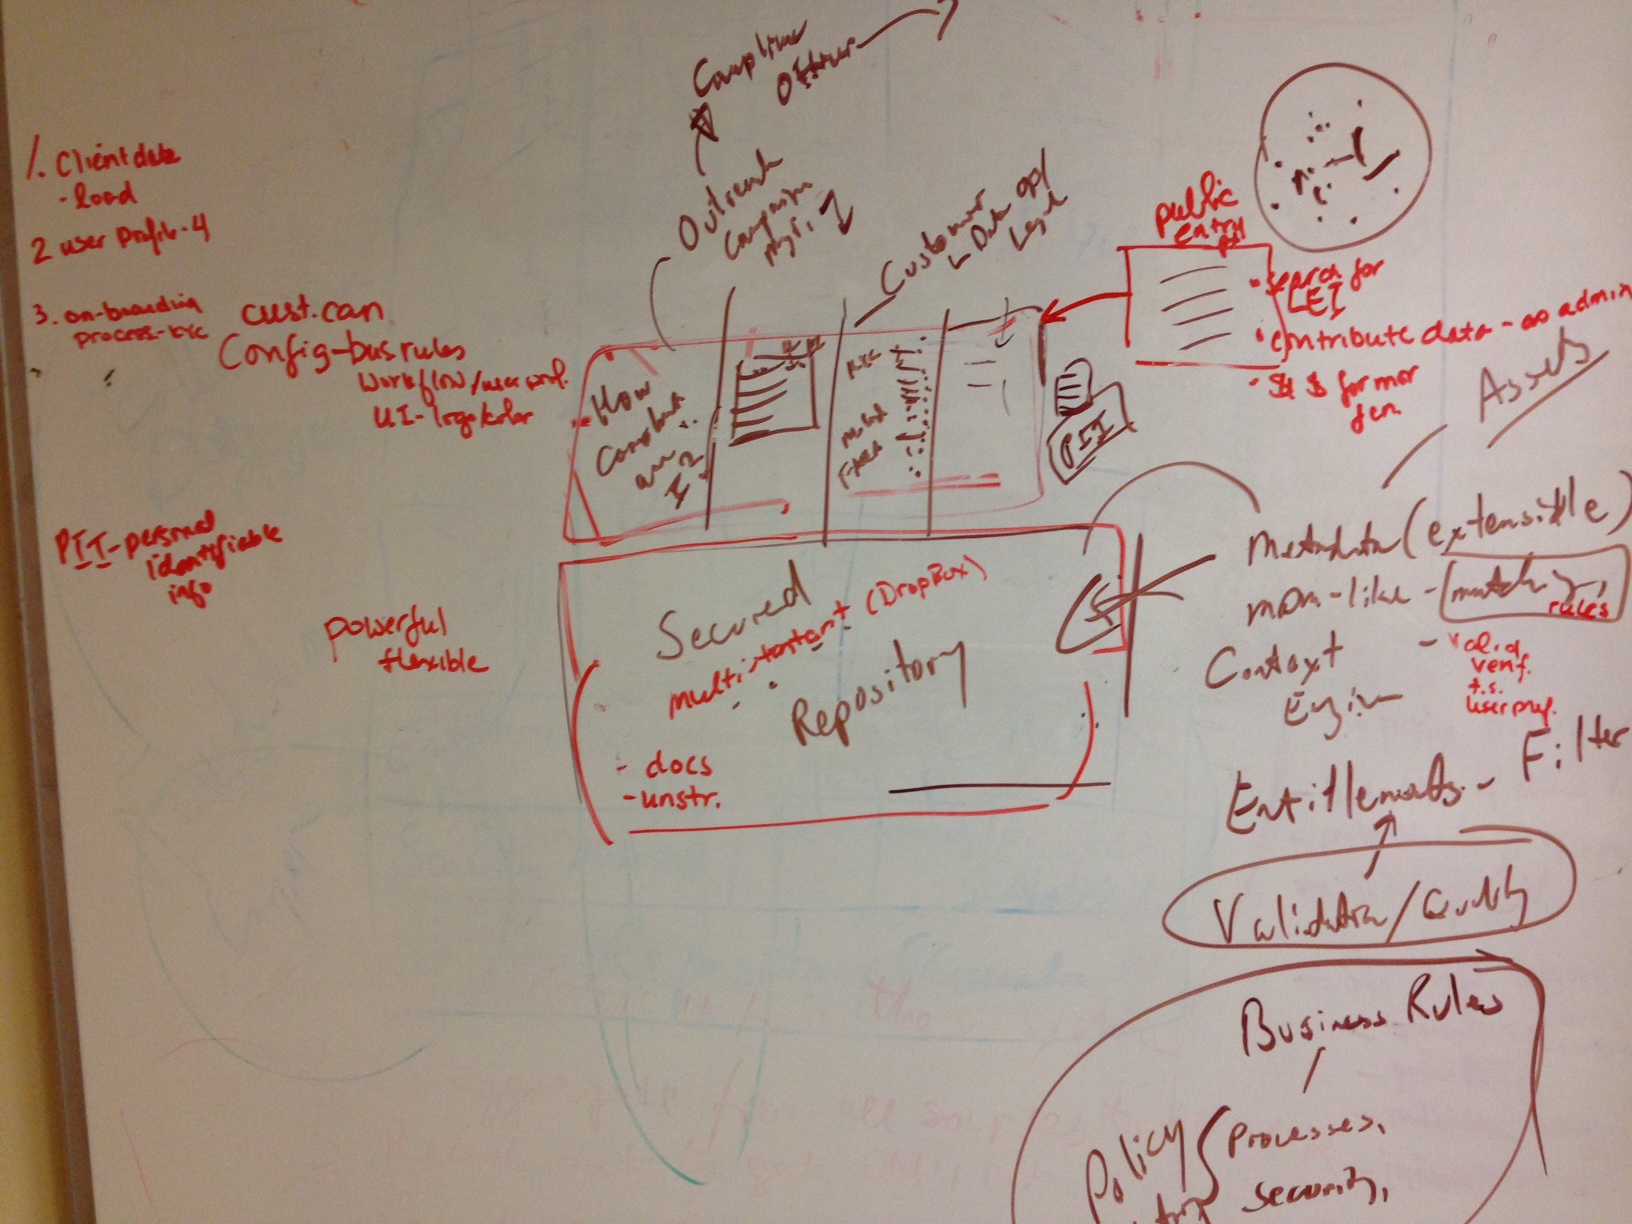 1. Client data
- load
2 user profile-4
3. on-boarding
process-
cust. can
Config-bus rules
Workflow/user pref.
UI-logo/color
PII-personal
identifiable
info
powerful
flexible
Compliance
Officer
Outreach
Campaign
Mgr.
Customer
Data Op/
Legal
public
entry
pt
• search for
LEI
• contribute data - as admin
• $ $ for mor
fen.
How
Compliant
am
I?
KYC
FATCA
PII
Secured
multi-tenant (DropBox)
Repository
- docs
- unstr.
Assets
Metadata (extensible)
MDM-like - matching
rules
Context
Engin
- valid.
verif.
t.s.
user pref.
Entitlements - Filter
Validation/Quality
Business Rules
Policy
Processes,
security,